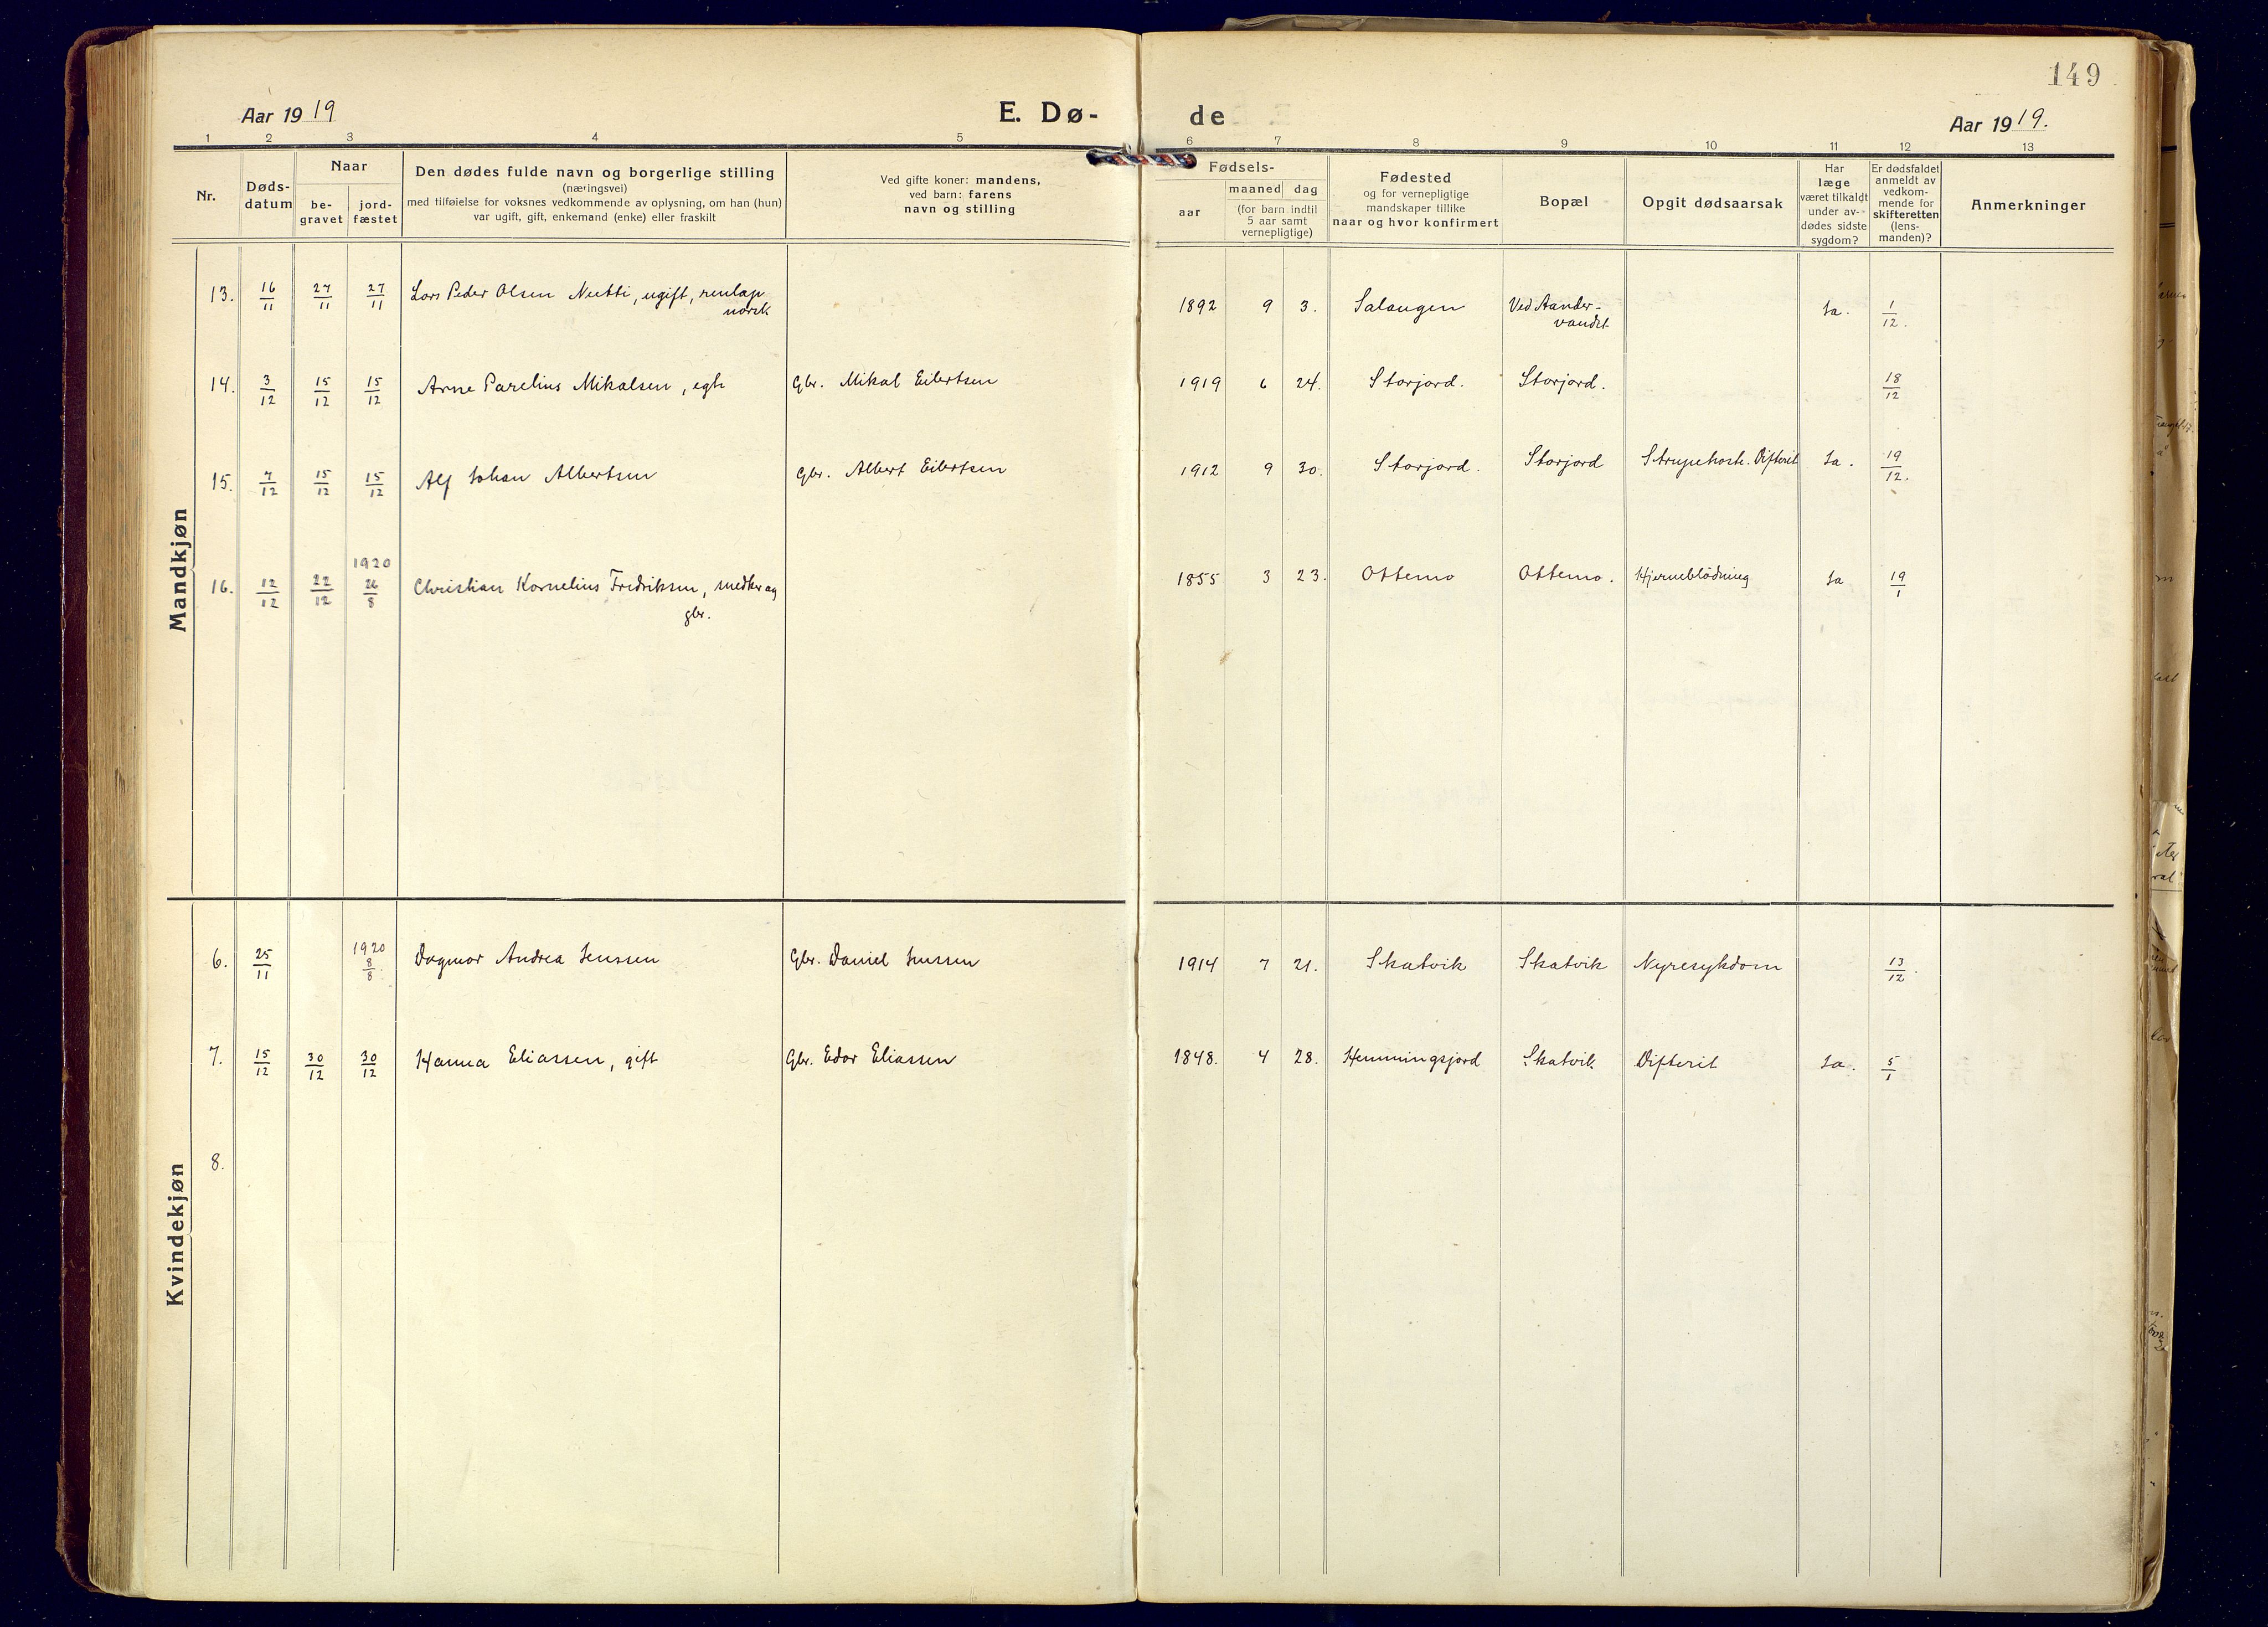 149
Aar 1919
E. Dø-
de
Aar 1919.
1 2 3 4 5 6 7 8 9 10 11 12 13
Nr.
Døds-
datum
Naar
be-
gravet
jord-
fæstet
Den dødes fulde navn og borgerlige stilling
(næringsvei)
med tilføielse for voksnes vedkommende av oplysning, om han (hun)
var ugift, gift, enkemand (enke) eller fraskilt
Ved gifte koner: mandens,
ved barn: farens
navn og stilling
Fødsels-
aar
maaned dag
(for barn indtil
5 aar samt
vernepligtige)
Fødested
og for vernepligtige
mandskaper tillike
naar og hvor konfirmert
Bopæl
Opgit dødsaarsak
Har
læge
været tilkaldt
under av-
dødes sidste
sygdom?
Er dødsfaldet
anmeldt av
vedkom-
mende for
skifteretten
(lens-
manden)?
Anmerkninger
Mandkjøn
13. 16/11 27/11 27/11 Lars Peder Olsen Nutti, ugift, renlap, 1892 9 3. Salangen Ved Aander- Ja. 1/12.
norsk vandet
14. 3/12 15/12 15/12 Arne Parelius Mikalsen, egte Gbr. Mikal Eilertsen 1919 6 24. Storjord. Storjord. 18/12
15. 7/12 15/12 15/12 Alf Johan Albertsen Gbr. Albert Eilertsen 1912 9 30. Storjord. Storjord Strupehoste. Difterit Ja. 19/12.
1920
16. 12/12 22/12 26/8 Christian Kornelius Fredriksen, medhr og 1855 3 23. Ottemo Ottemo. Hjerneblødning Ja 19/1
gbr.
Kvindekjøn
1920
6. 25/11 8/8. Dagmar Andrea Jenssen Gbr. Daniel Jenssen 1914 7 21. Skatvik Skatvik Nyresykdom 13/12.
7. 15/12 30/12 30/12 Hanna Eliassen, gift Gbr. Edor Eliassen 1848. 4 28. Hemmingsjord Skatvik Difterit Ja. 5/1
8.